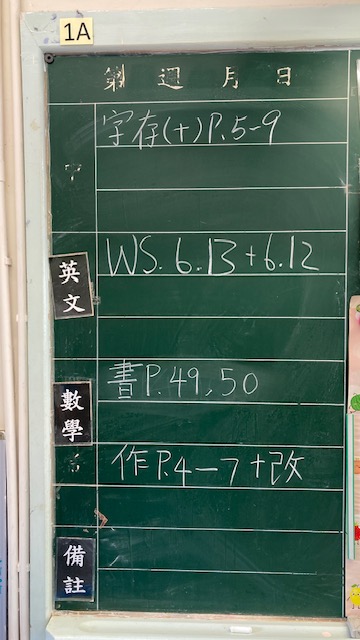 1A
第 週 月 日
字存(十)P.5-9
英文
WS. 6.13+6.12
數學
書P.49,50
作P.4-7+改
備註